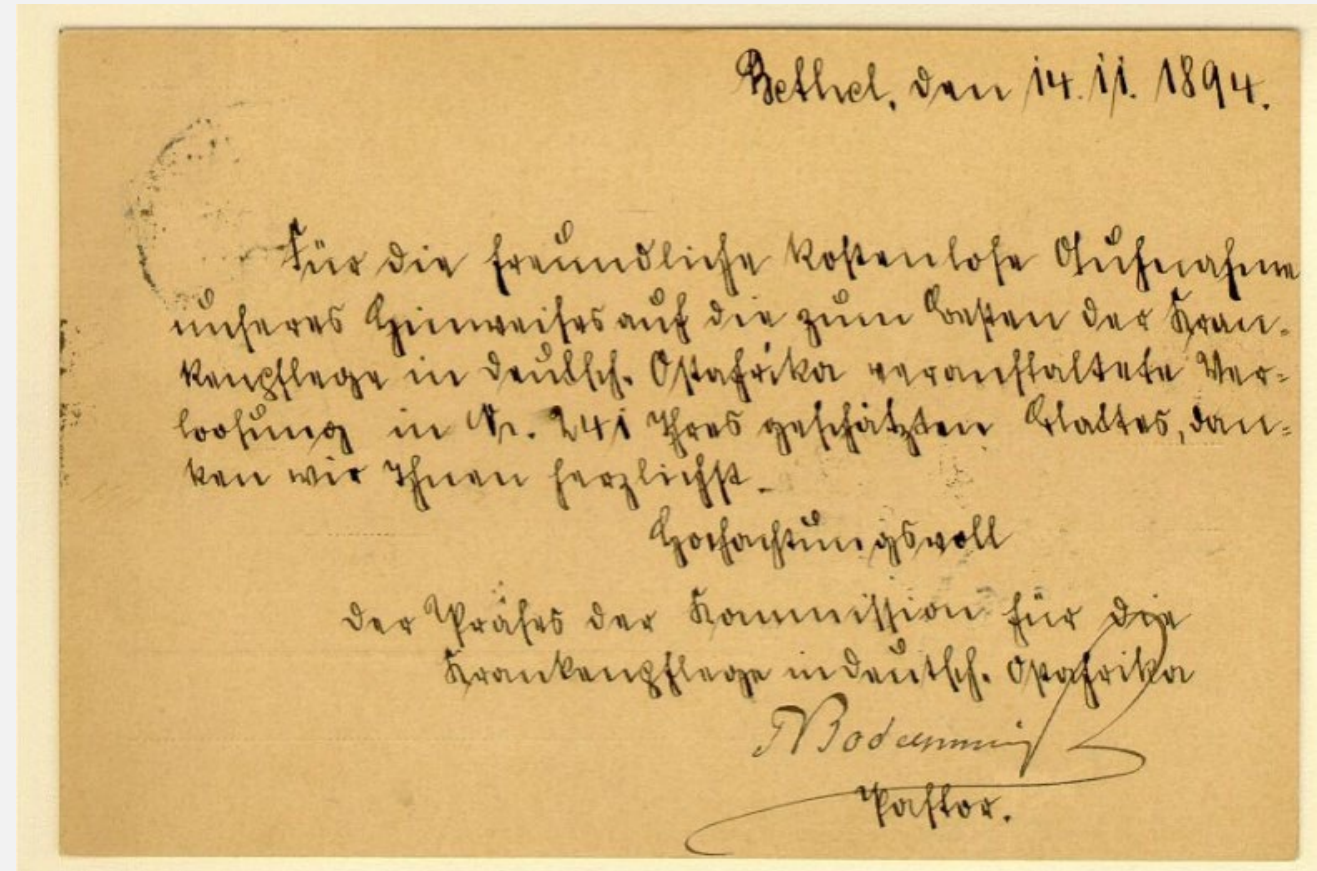 Bethel, den 14. 11. 1894.
Für die freundliche kostenlose Aufnahme
unseres Hinweises auf die zum besten der Kran-
kenpflege in deutsch. Ostafrika veranstaltete Ver-
loosung in Nr. 241 Ihres geschätzten Blattes, dan-
ken wir Ihnen herzlichst.
Hochachtungsvoll
der Präses der Kommission für die
Krankenpflege in deutsch. Ostafrika
Pastor.